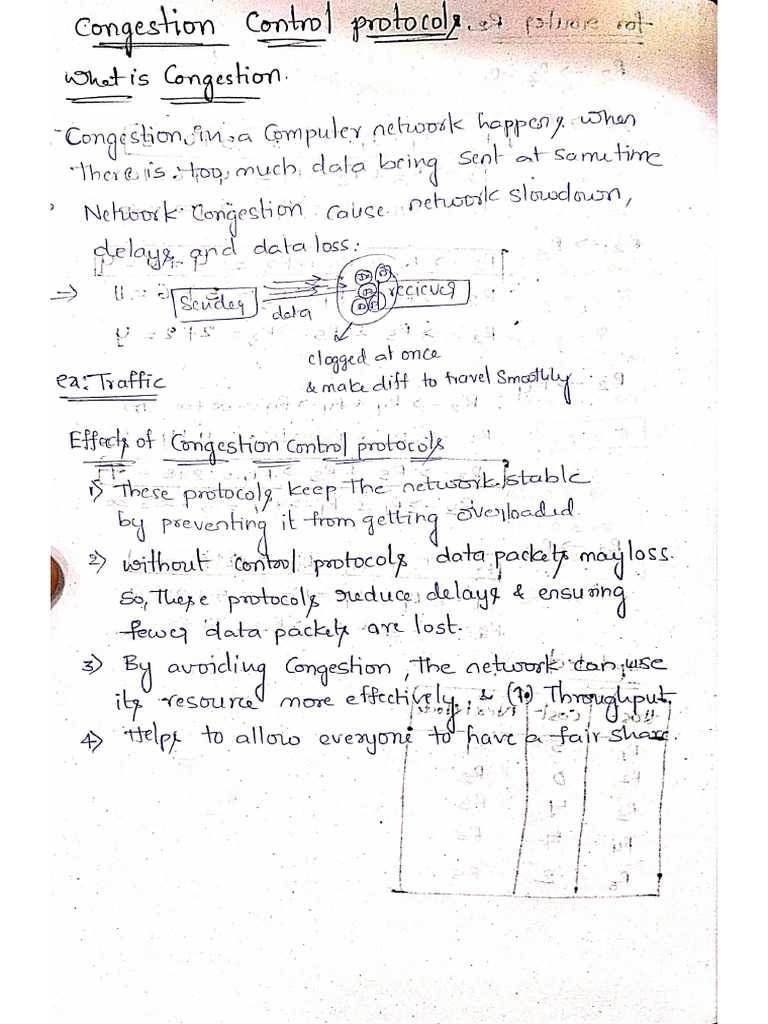 Congestion Control protocols.
What is Congestion.
Congestion in a Computer network happens when
There is too much data being sent at same time
Network Congestion cause network slowdown,
delays and data loss:
⇒ Sender data reciever
clogged at once
& make diff to travel Smoothly
ex: Traffic
Effects of Congestion Control protocols
1) These protocols keep The network stable
by preventing it from getting overloaded
2) without control protocols data packets may loss.
So, These protocols reduce delays & ensuring
fewer data packets are lost.
3) By avoiding Congestion, The network can use
its resource more effectively & (↑) Throughput.
4) Helps to allow everyone to have a fair share.